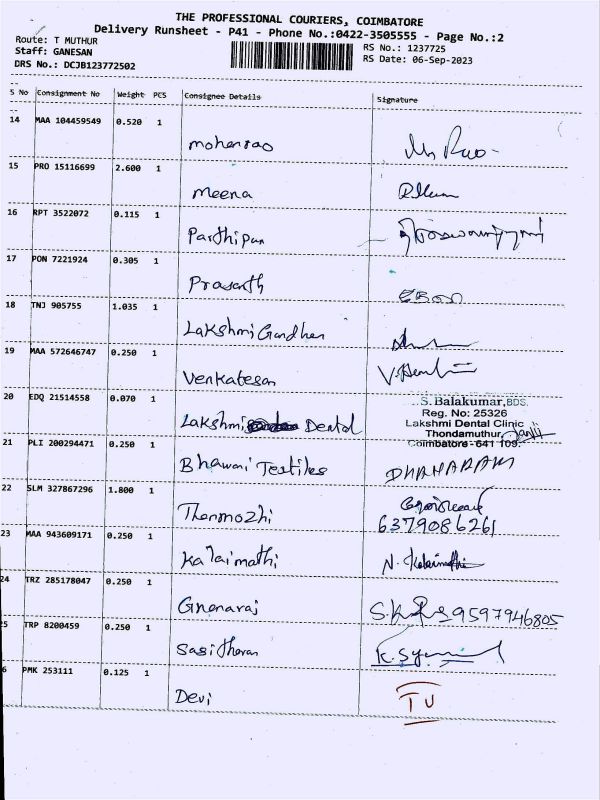 THE PROFESSIONAL COURIERS, COIMBATORE
Delivery Runsheet - P41 - Phone No.:0422-3505555 - Page No.:2
Route: T MUTHUR
RS No.: 1237725
Staff: GANESAN
RS Date: 06-Sep-2023
DRS No.: DCJB123772502
S No Consignment No Weight PCS Consignee Details Signature
14 MAA 104459549 0.520 1
mohanrao
15 PRO 15116699 2.600 1
meena
16 RPT 3522072 0.115 1
Parthipan
17 PON 7221924 0.305 1
Prasanth
18 TNJ 905755 1.035 1
Lakshmi Gandhan
19 MAA 572646747 0.250 1
Venkatesan
20 EDQ 21514558 0.070 1
S. Balakumar, BDS.
Reg. No: 25326
Lakshmi Dental Lakshmi Dental Clinic
Thondamuthur,
Coimbatore - 641 109.
21 PLI 200294471 0.250 1
Bhawani Textiles DHANARAM
22 SLM 327867296 1.800 1
Thenmozhi
6379086261
23 MAA 943609171 0.250 1
Kalaimathi N. Kalaimathi
24 TRZ 285178047 0.250 1
Gnanaraj 9597946805
25 TRP 8200459 0.250 1
Sasitharan
6 PMK 253111 0.125 1
Devi TU